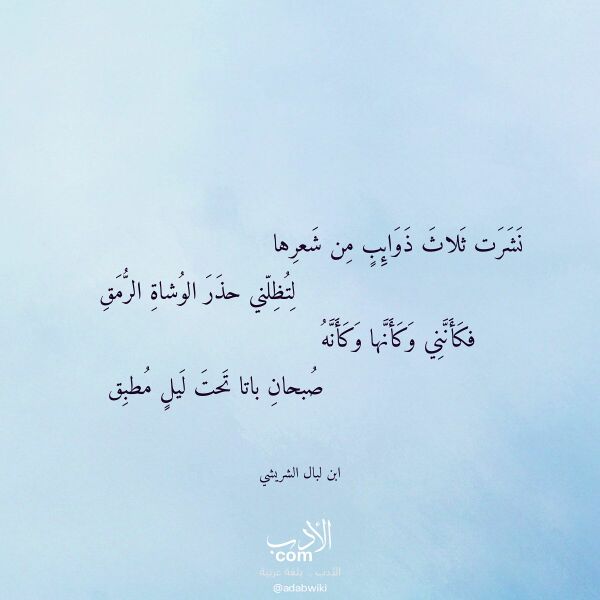 نَشَرَت ثَلاثَ ذَوَائِبٍ مِن شَعرِها
لِتُظِلّني حذَرَ الوُشاةِ الرُّمَقِ
فكَأَنَّنِي وَكَأَنَّها وَكَأَنَّهُ
صُبحانِ باتا تَحتَ لَيلٍ مُطبِق
ابن لبال الشريشي
الأدب
com
الأدب .. بلغة عربية
@adabwiki